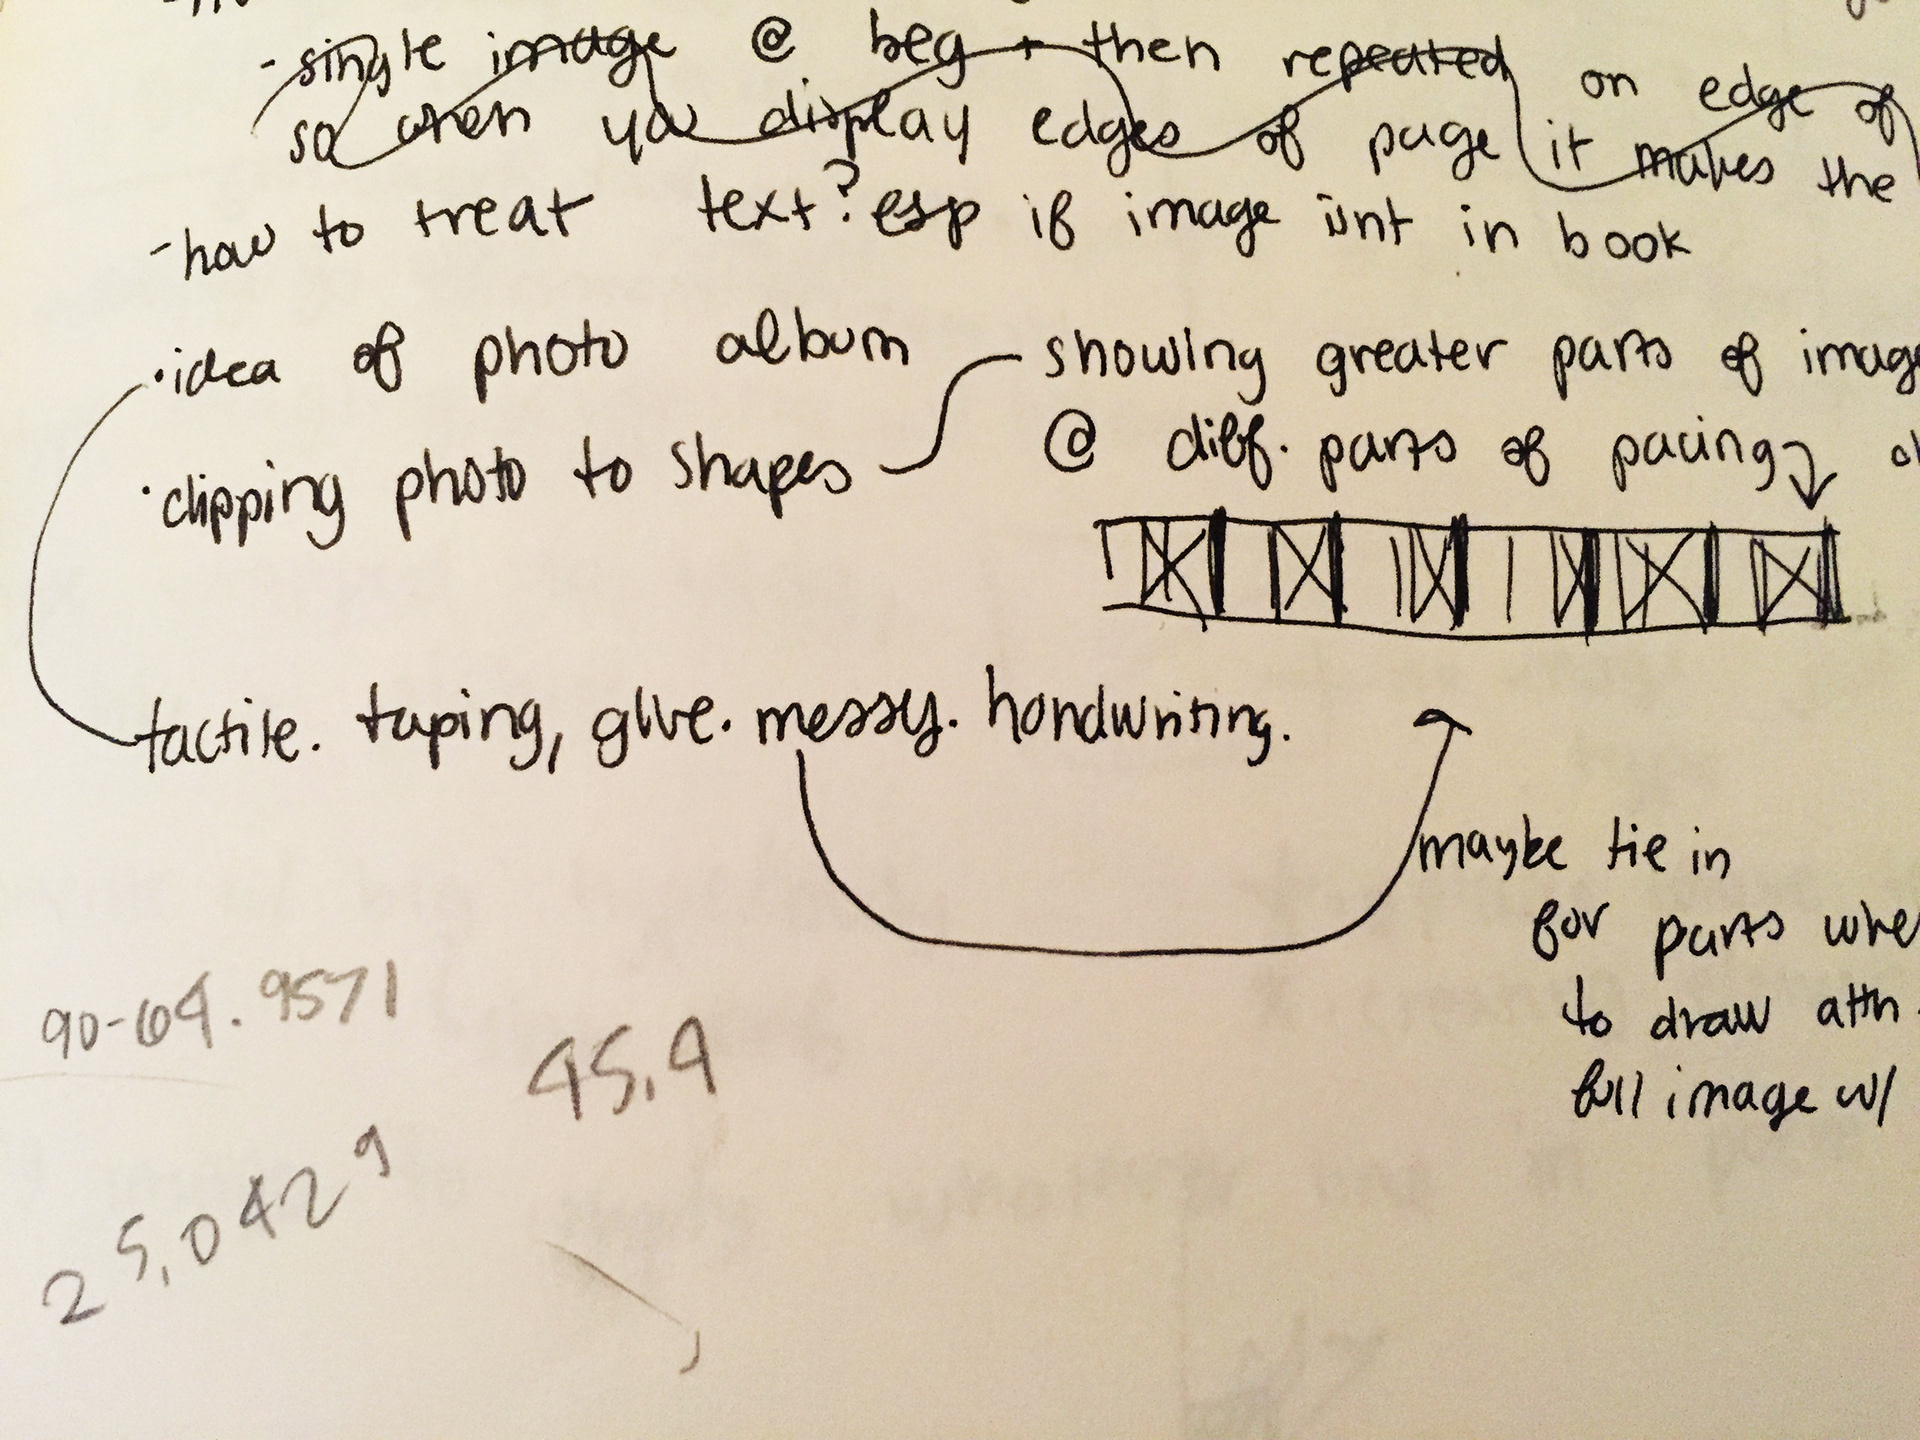 - single image @ beg + then repeated on edge of
so when you display edges of page it makes the
- how to treat text? esp if image isnt in book
· idea of photo album
showing greater parts of image
@ diff. parts of pacing
· clipping photo to shapes
tactile. taping, glue. messy. handwriting.
maybe tie in
for parts whe
to draw attn.
full image w/
90-64.9571
45,4
25,0429